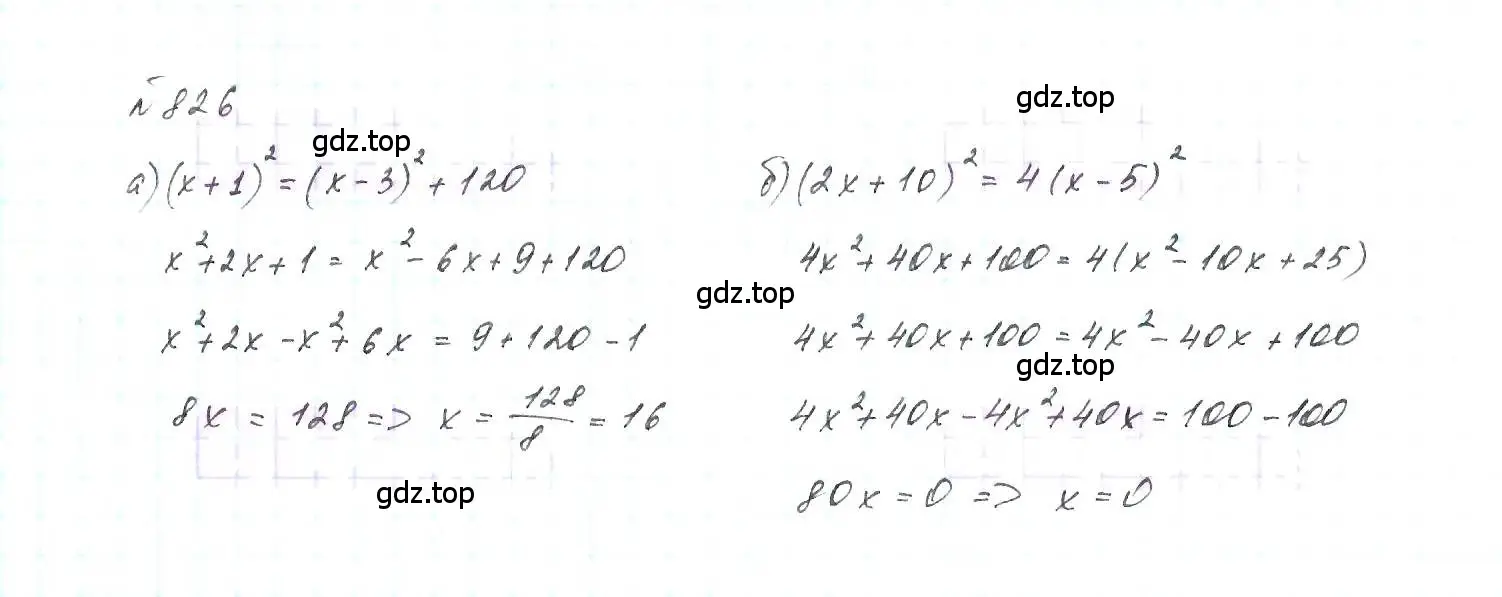 № 826
gdz.top
gdz.top
а) (x+1)² = (x-3)² + 120
x²+2x+1 = x²-6x+9+120
x²+2x-x²+6x = 9+120-1
8x = 128 => x = 128/8 = 16
gdz.top
gdz.top
б) (2x+10)² = 4(x-5)²
4x²+40x+100 = 4(x²-10x+25)
4x²+40x+100 = 4x²-40x+100
gdz.top
4x²+40x-4x²+40x = 100-100
80x = 0 => x = 0